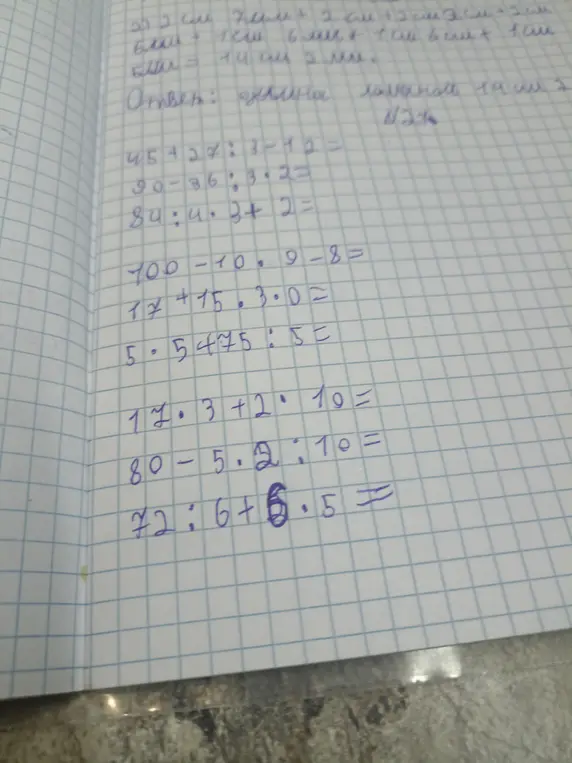 2 см 7 мм + 2 см + 2 см 2 см + 2 см
6 мм + 1 см 6 мм + 1 см 6 мм + 1 см
5 мм = 14 см 2 мм.
Ответ: ломаной 14 см 2
45+27:3-12=
90-36:3·2=
84:4·3+2=
100-10·9-8=
17+15·3·0=
5·5+75:5=
17·3+2·10=
80-5·2:10=
72:6+6·5=